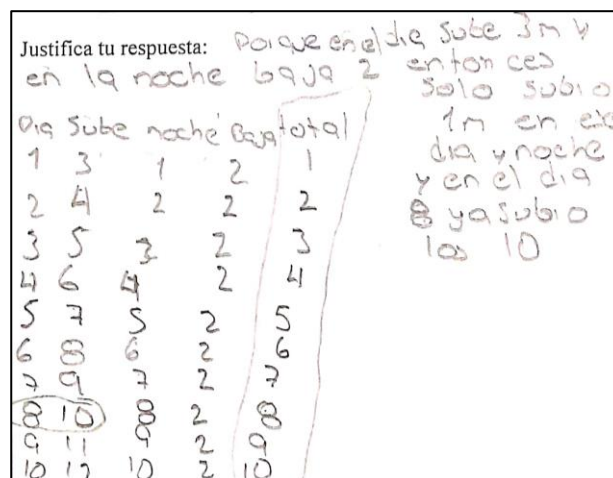 Justifica tu respuesta: Porque en el dia sube 3m y
en la noche baja 2 entonces
solo subio
1m en ese
dia y noche
y en el dia
8 ya subio
los 10
Dia Sube noche Baja total
1 3 1 2 1
2 4 2 2 2
3 5 3 2 3
4 6 4 2 4
5 7 5 2 5
6 8 6 2 6
7 9 7 2 7
8 10 8 2 8
9 11 9 2 9
10 12 10 2 10